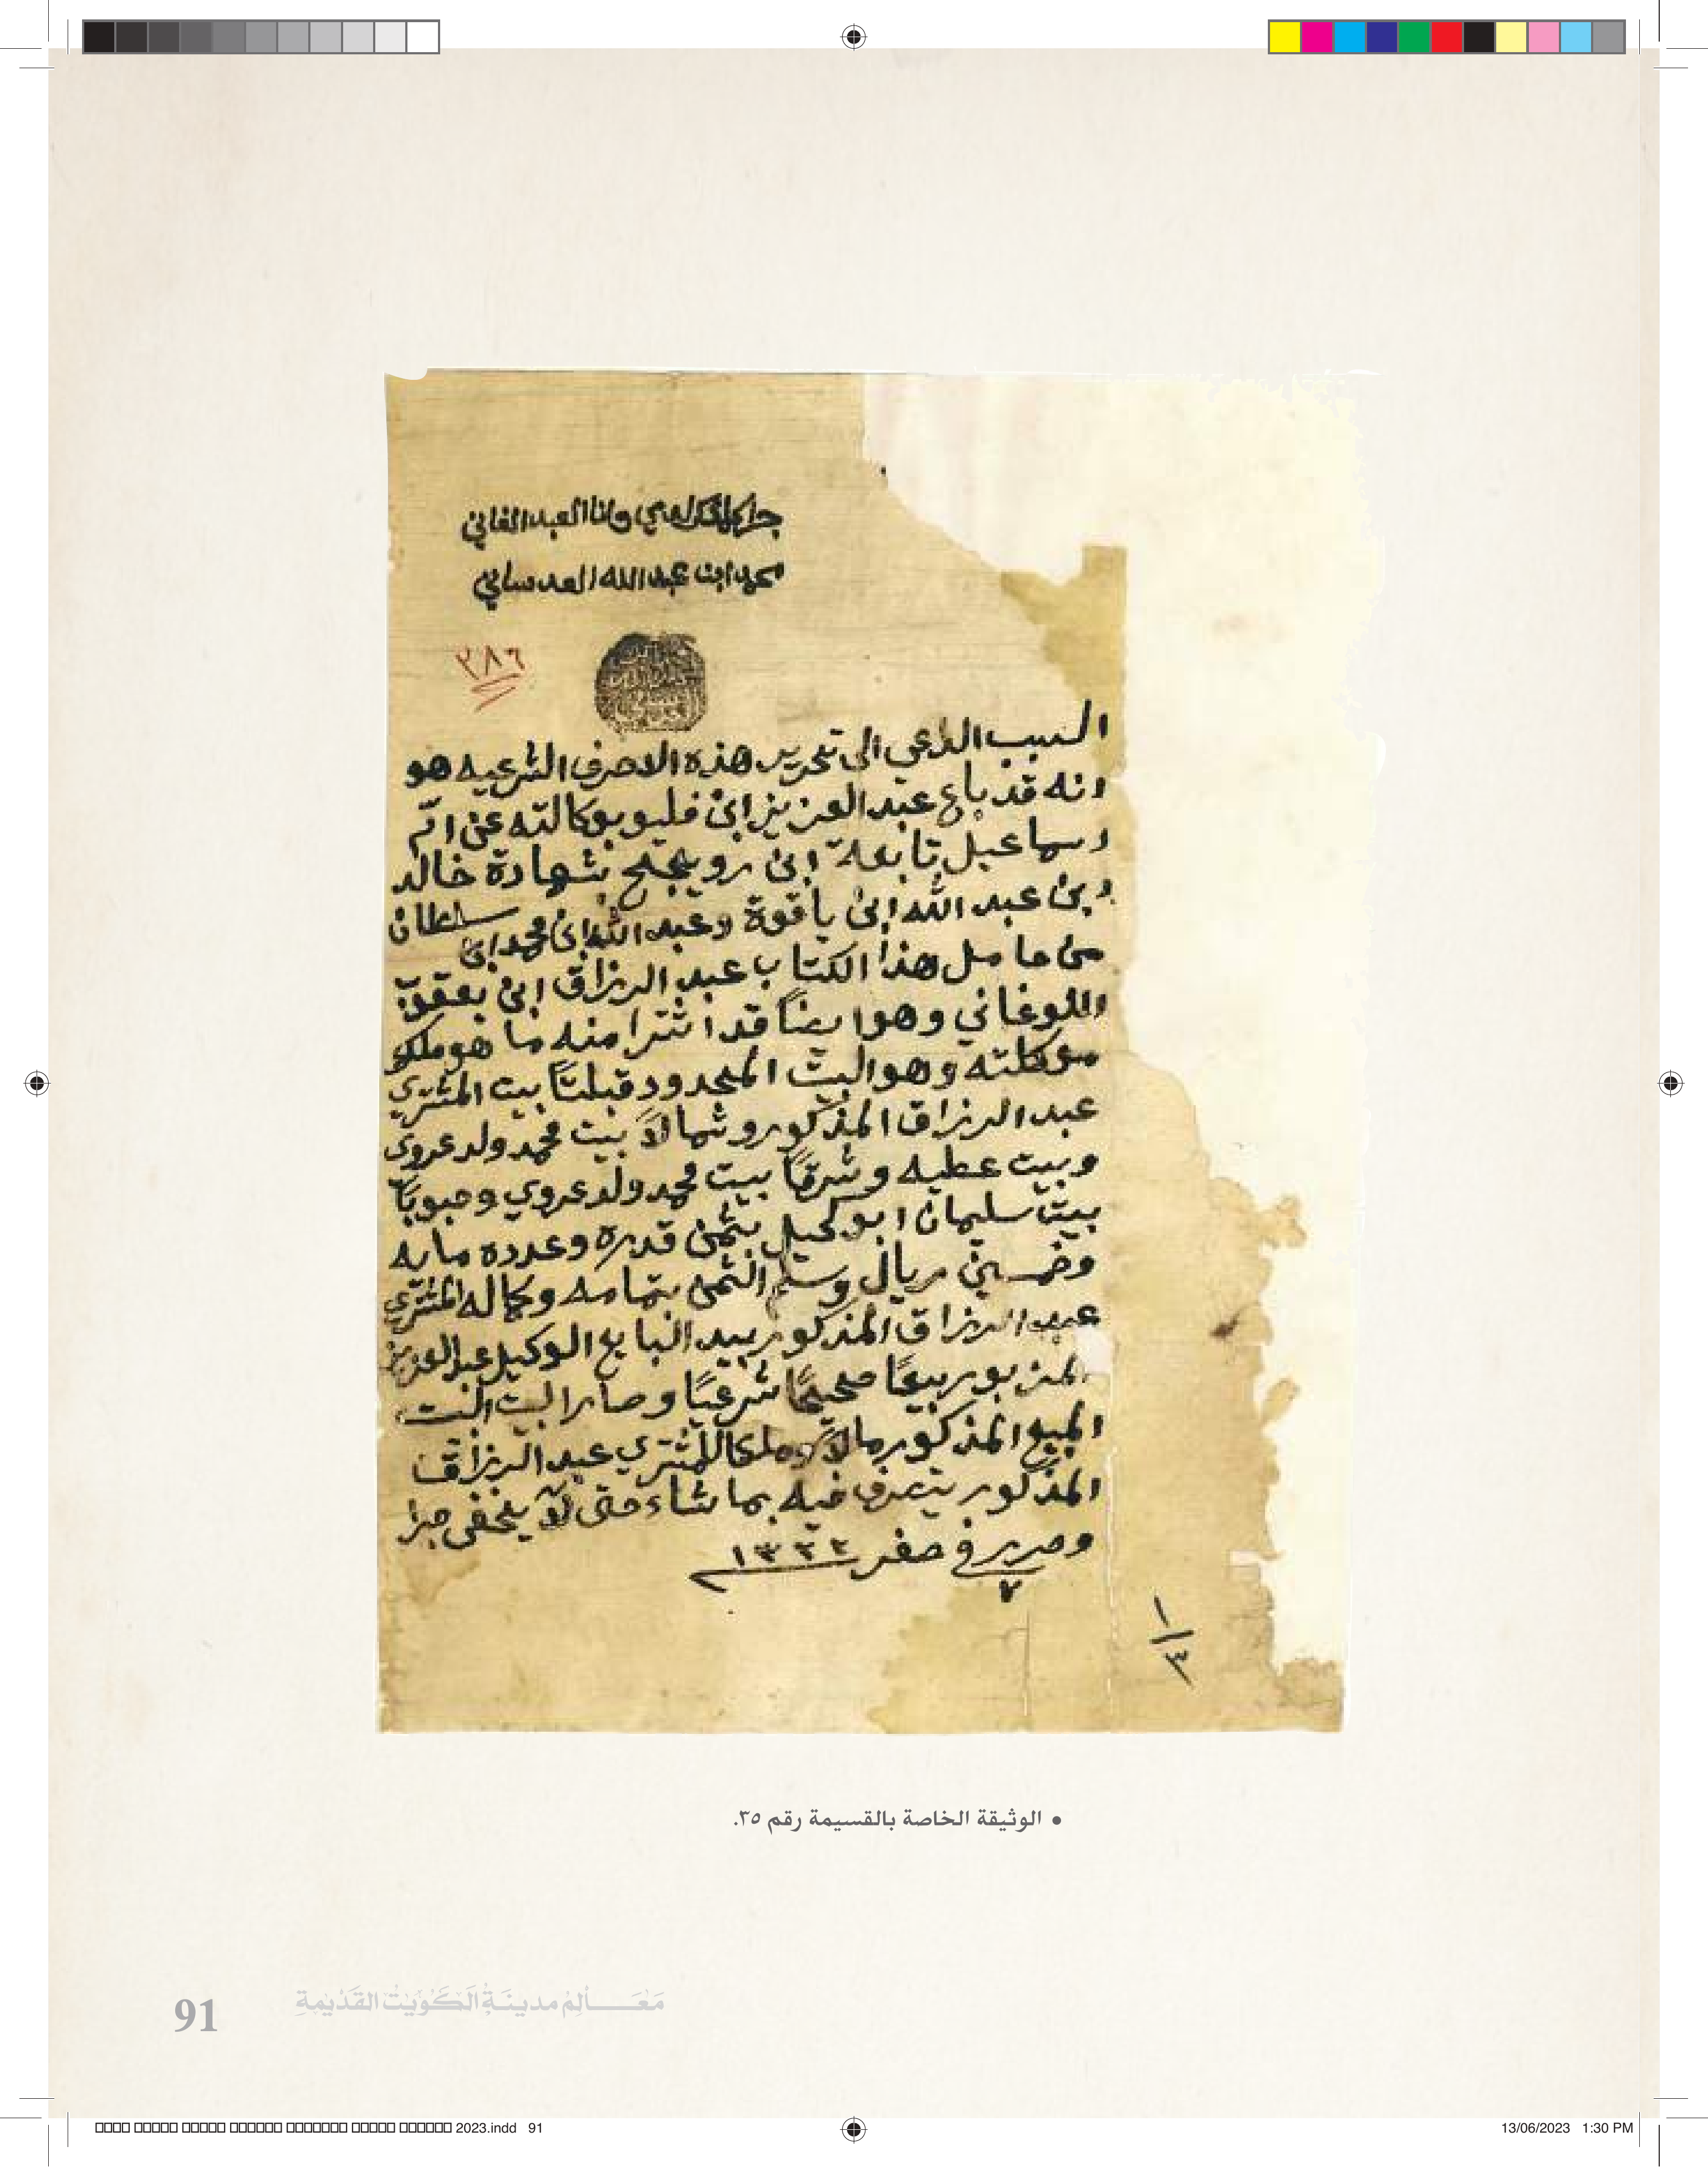 جرا كما ذكر لدي وانا العبد الفاني
محمد ابن عبدالله العدساني
٢٨٦
السبب الداعي الى تحرير هذه الاحرف الشرعيه هو
انه قد باع عبد العزيز ابن فليو بوكالته عن ام
اسماعيل تابعة ابن رويجح بشهادة خالد
ابن عبد الله ابن ياقوة وعبد الله ابن محمد ابن سلطان
من حامل هذا الكتاب عبد الرزاق ابن يعقوب
اللوغاني وهو ايضاً قد اشترا منه ما هو ملك
موكلته وهو البيت المحدود قبلتاً بيت المشتري
عبد الرزاق المذكور وشمالاً بيت محمد ولد عروي
وبيت عطيه وشرقاً بيت محمد ولد عروي وجنوباً
بيت سليمان ابو كحيل بثمن قدره وعدده مايه
وخمسين ريال وسلم الثمن بتمامه وكماله المشتري
عبد الرزاق المذكور بيد البايع الوكيل عبد العزيز
المزبور بيعاً صحيحاً شرعياً وصار البيت
المبيع المذكور مالاً وملكا للمشتري عبد الرزاق
المذكور يتصرف فيه بما شاء حتى لا يخفى جرا
وحرر في ٧ صفر ١٣٢٢
١/٣
• الوثيقة الخاصة بالقسيمة رقم ٣٥.
مَعَالِم مدينَة الكُوَيْت القَدْيمَة
91
2023.indd 91
13/06/2023 1:30 PM